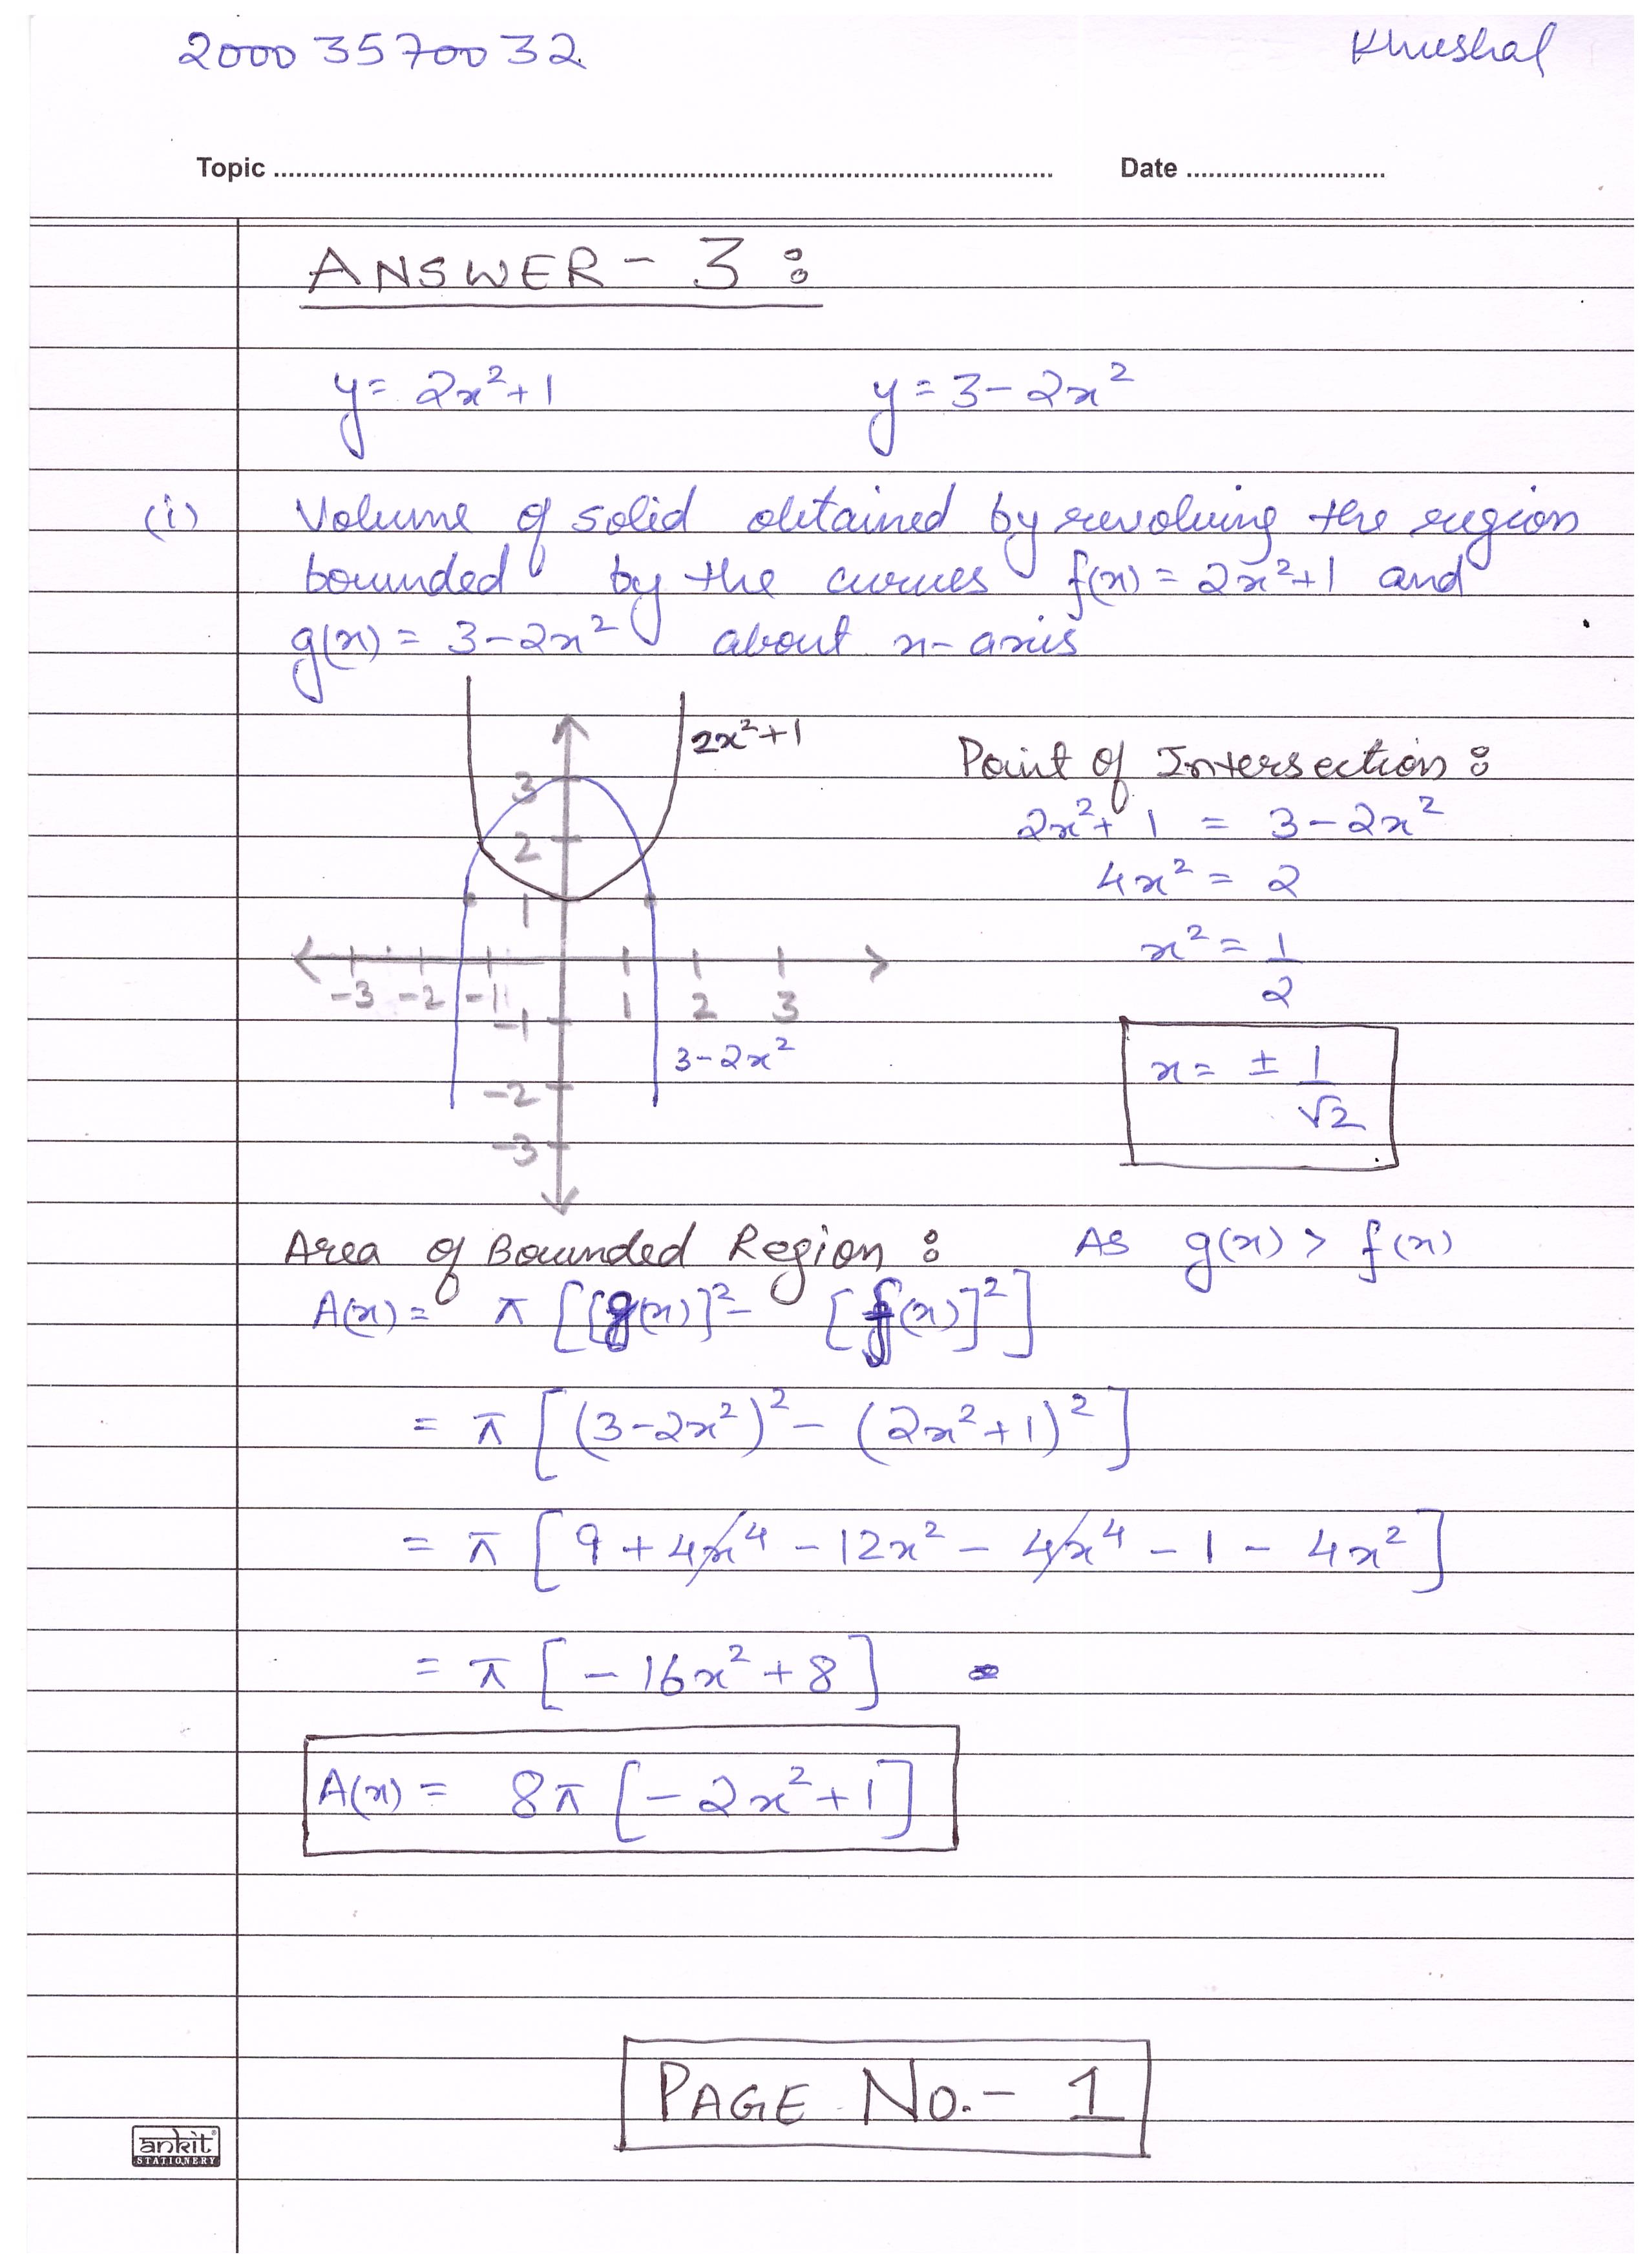 20003570032 Khushal
Topic ............ Date ............
ANSWER - 3 :
y = 2x²+1 y = 3-2x²
(i) Volume of solid obtained by revolving the region
bounded by the curves f(x) = 2x²+1 and
g(x) = 3-2x² about x-axis
2x²+1
Point of Intersection :
3
2x²+1 = 3-2x²
2
4x² = 2
1
x² = 1/2
-3 -2 -1 1 2 3
-1
3-2x²
x = ± 1/√2
-2
-3
Area of Bounded Region : As g(x) > f(x)
A(x) = π [[g(x)]² - [f(x)]²]
= π [(3-2x²)² - (2x²+1)²]
= π [9 + 4x⁴ - 12x² - 4x⁴ - 1 - 4x²]
= π [-16x² + 8]
A(x) = 8π [-2x²+1]
PAGE No.- 1
ankit
STATIONERY